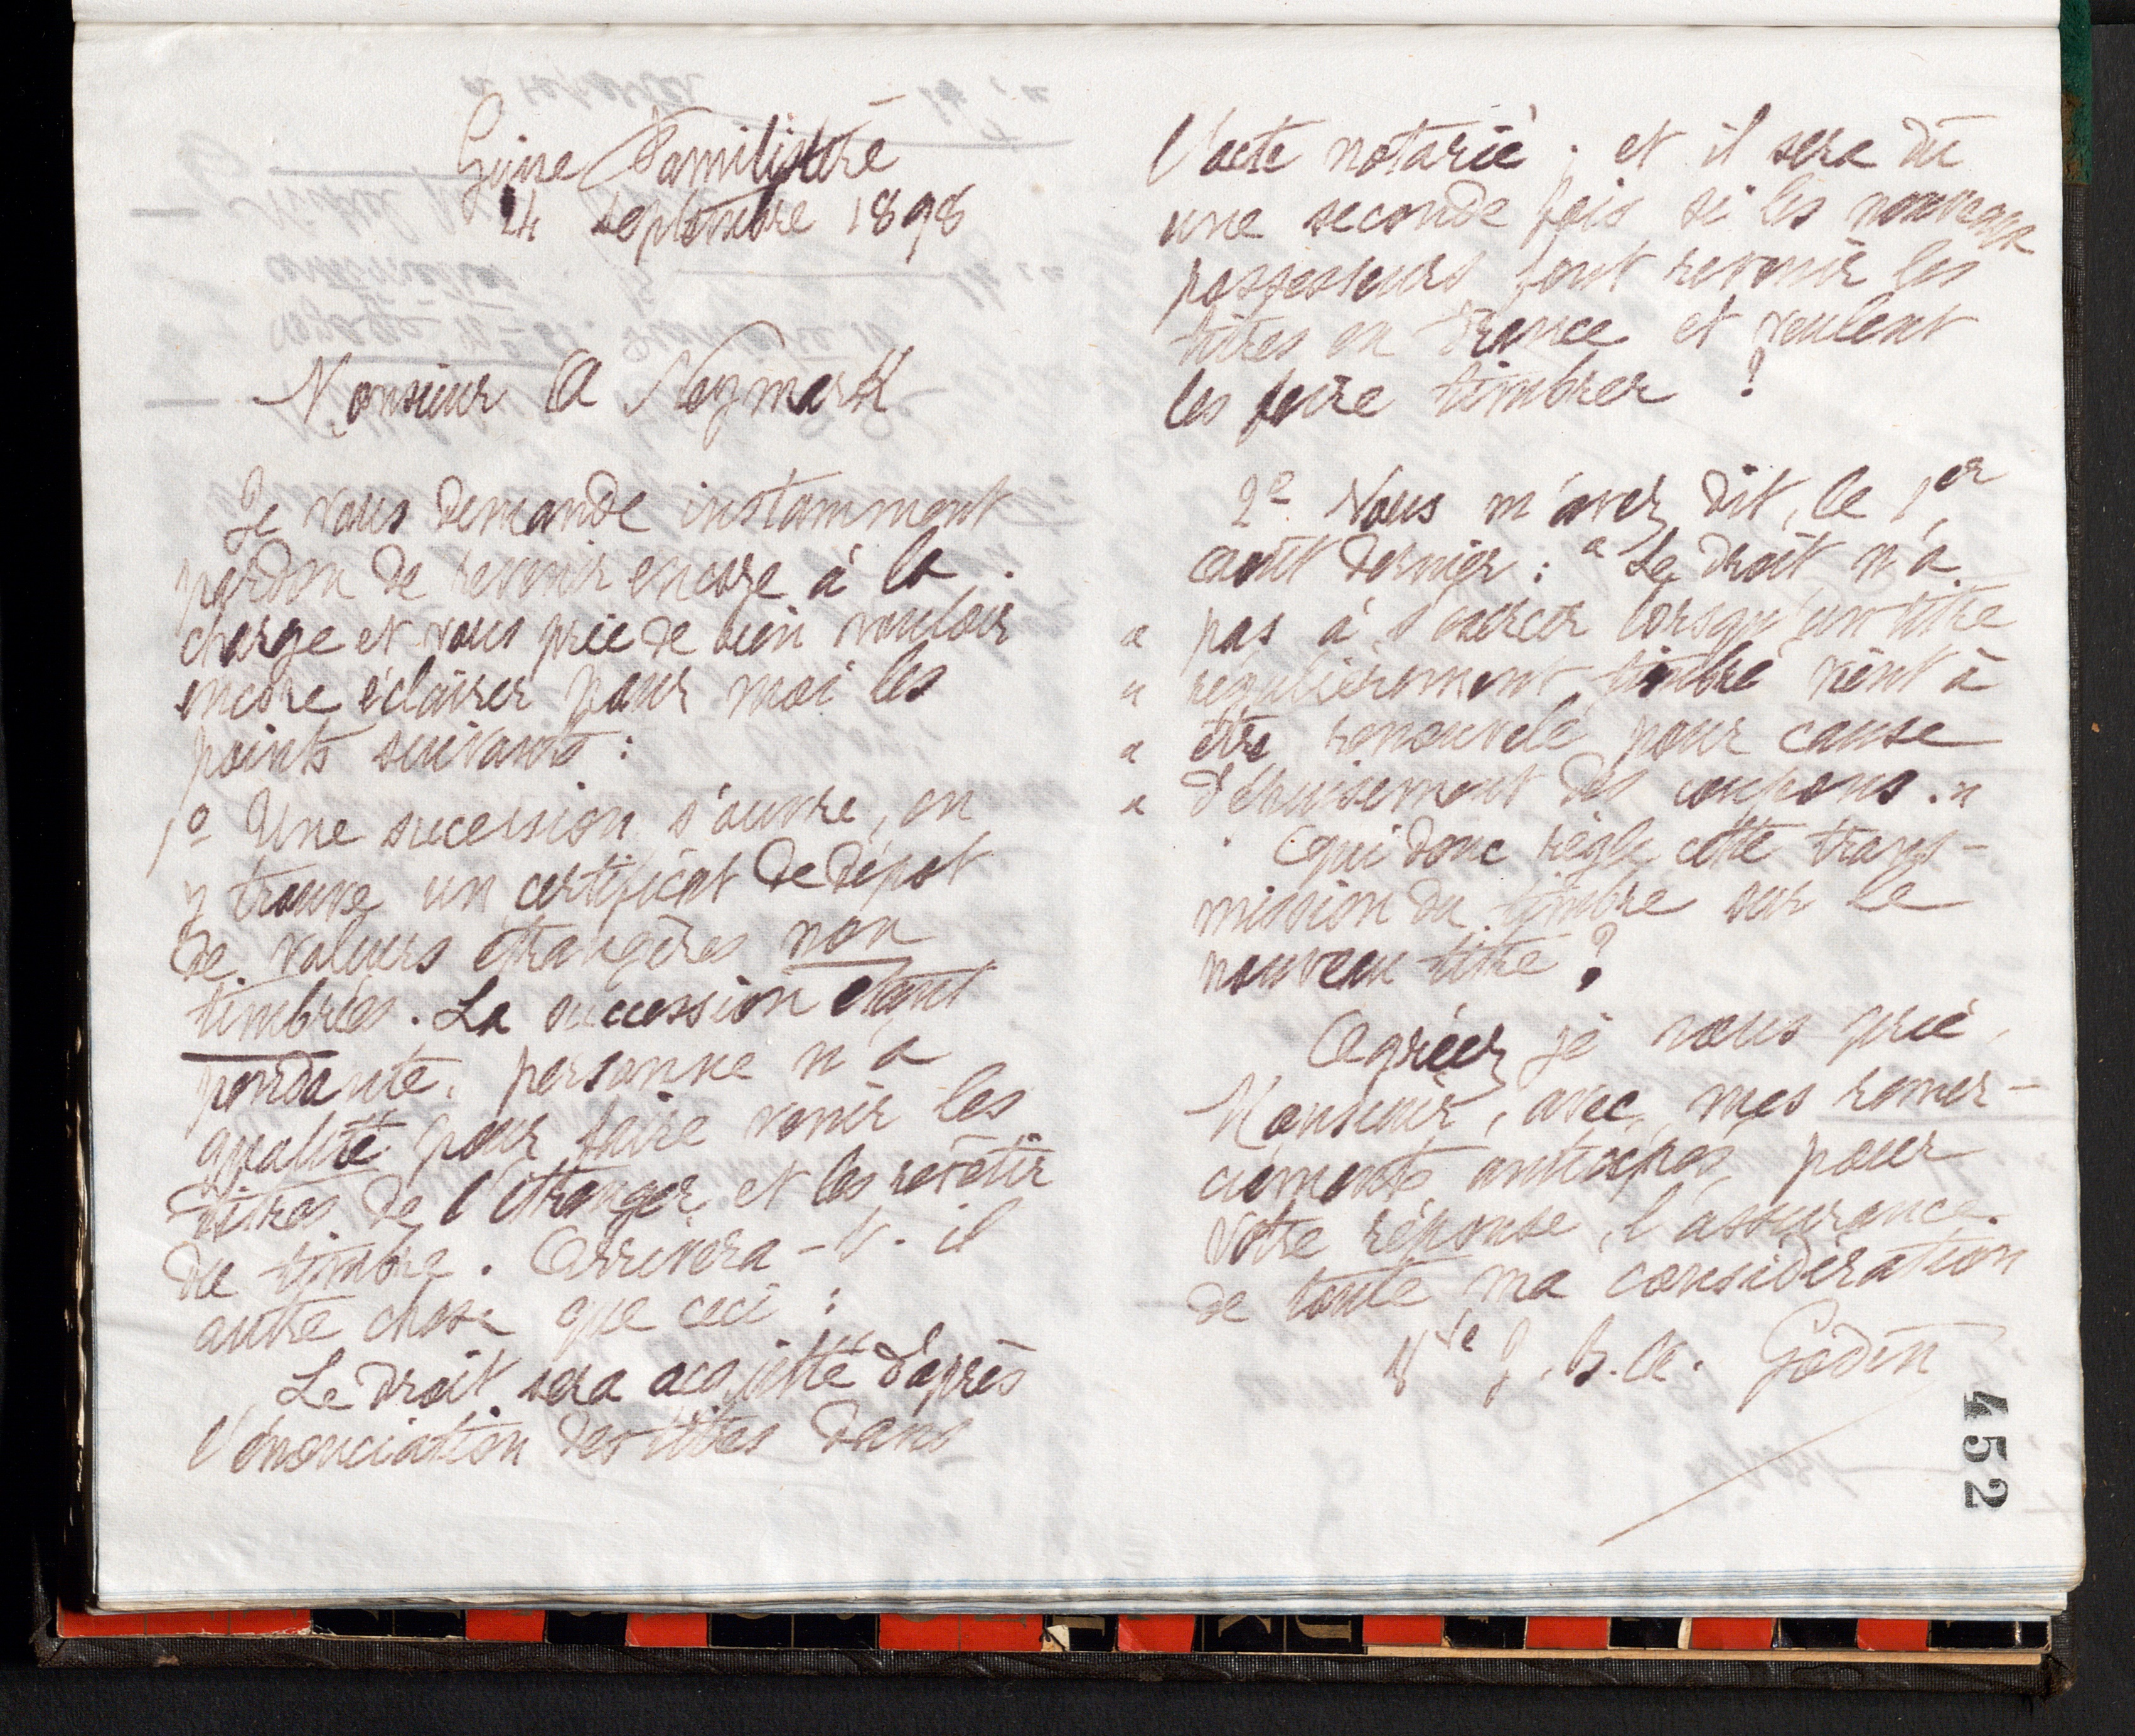 Guise Familistère
14 septembre 1898
Monsieur A Neymarck
Je vous demande instamment
pardon de revenir encore à la
charge et vous prie de bien vouloir
encore éclairer pour moi les
points suivants :
1º Une succession s'ouvre, on
y trouve un certificat de dépot
de valeurs étrangères non
timbrées. La succession étant
pendante, personne n'a
qualité pour faire venir les
titres de l'étranger et les revêtir
du timbre. Arrivera-t-il
autre chose que ceci :
Le droit sera acquitté d'après
l'énonciation des titres dans
l'acte notarié ; et il sera dû
une seconde fois si les nouveaux
possesseurs font revenir les
titres en France et veulent
les faire timbrer ?
2º Vous m'avez dit, le 1er
août dernier : " Le droit n'a
" pas à s'exercer lorsqu'un titre
" régulièrement timbré vient à
" être renouvelé pour cause
" d'épuisement des coupons. "
Qui donc règle cette trans-
mission du timbre sur le
nouveau titre ?
Agréez je vous prie,
Monsieur, avec mes remer-
ciements anticipés pour
votre réponse, l'assurance
de toute ma considération
Vve J. B. A. Godin
452